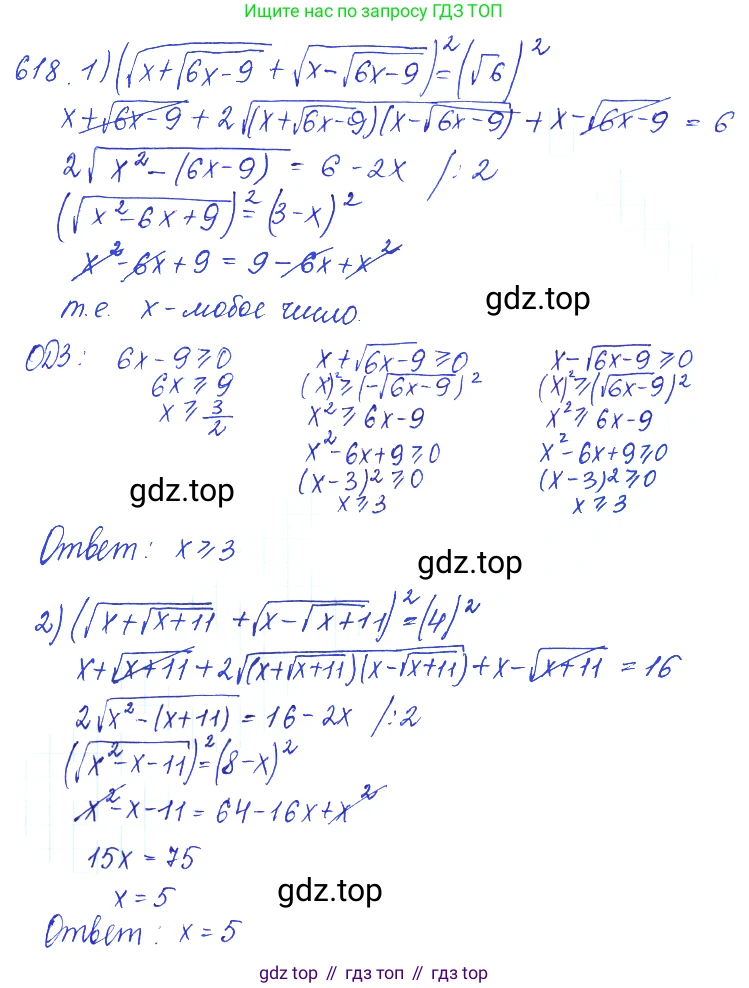 Ищите нас по запросу ГДЗ ТОП
618. 1) (√(x+√(6x-9)) + √(x-√(6x-9)))² = (√6)²
x+√(6x-9) + 2√((x+√(6x-9))(x-√(6x-9))) + x-√(6x-9) = 6
2√(x²-(6x-9)) = 6-2x /:2
(√(x²-6x+9))² = (3-x)²
x²-6x+9 = 9-6x+x²
т.е. x-любое число.
gdz.top
ОДЗ: 6x-9⩾0 x+√(6x-9)⩾0 x-√(6x-9)⩾0
6x⩾9 (x)²⩾(-√(6x-9))² (x)²⩾(√(6x-9))²
x⩾3/2 x²⩾6x-9 x²⩾6x-9
x²-6x+9⩾0 x²-6x+9⩾0
gdz.top (x-3)²⩾0 (x-3)²⩾0
x⩾3 x⩾3
Ответ: x⩾3
gdz.top
2) (√(x+√(x+11)) + √(x-√(x+11)))² = (4)²
x+√(x+11) + 2√((x+√(x+11))(x-√(x+11))) + x-√(x+11) = 16
2√(x²-(x+11)) = 16-2x /:2
(√(x²-x-11))² = (8-x)²
x²-x-11 = 64-16x+x²
15x = 75
x = 5
gdz.top
Ответ: x = 5
gdz top // гдз топ // gdz top